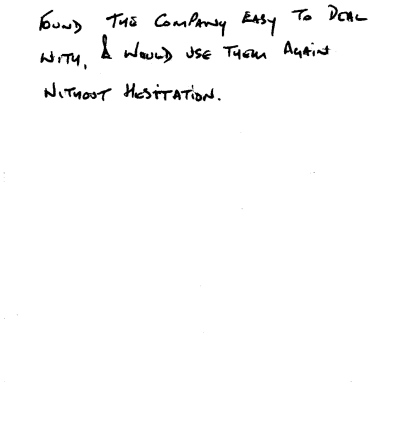 FOUND THE COMPANY EASY TO DEAL
WITH, & WOULD USE THEM AGAIN
WITHOUT HESITATION.